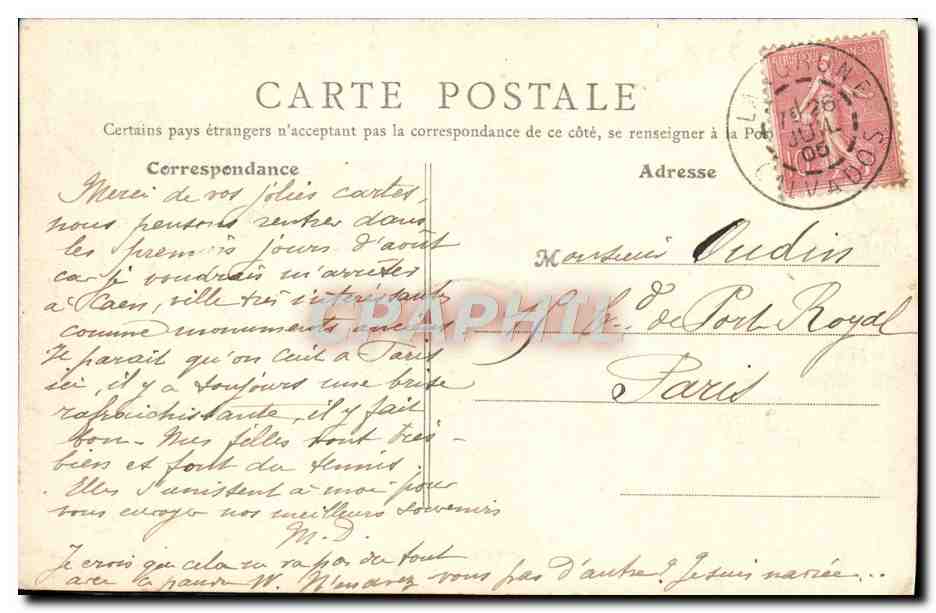 CARTE POSTALE
Certains pays étrangers n'acceptant pas la correspondance de ce côté, se renseigner à la Pos
Correspondance
Merci de vos jolies cartes,
nous pensons rentrer dans
les premiers jours d'août
car je voudrais m'arrêter
à Caen, ville très intéressante
comme monuments anciens
Il parait qu'on cuit à Paris
ici, il y a toujours une brise
rafraichissante, il y fait
bon - Mes filles vont très
bien et font du tennis.
Elles s'unissent à moi pour
vous envoyer nos meilleurs souvenirs
M. D.
Je crois que cela ne va pas du tout
avec W. N'en avez vous pas d'autre? Je suis navrée...
Adresse
Monsieur Oudin
Bd de Port Royal
Paris
26
JUIL
05
CALVADOS
CPARHIL